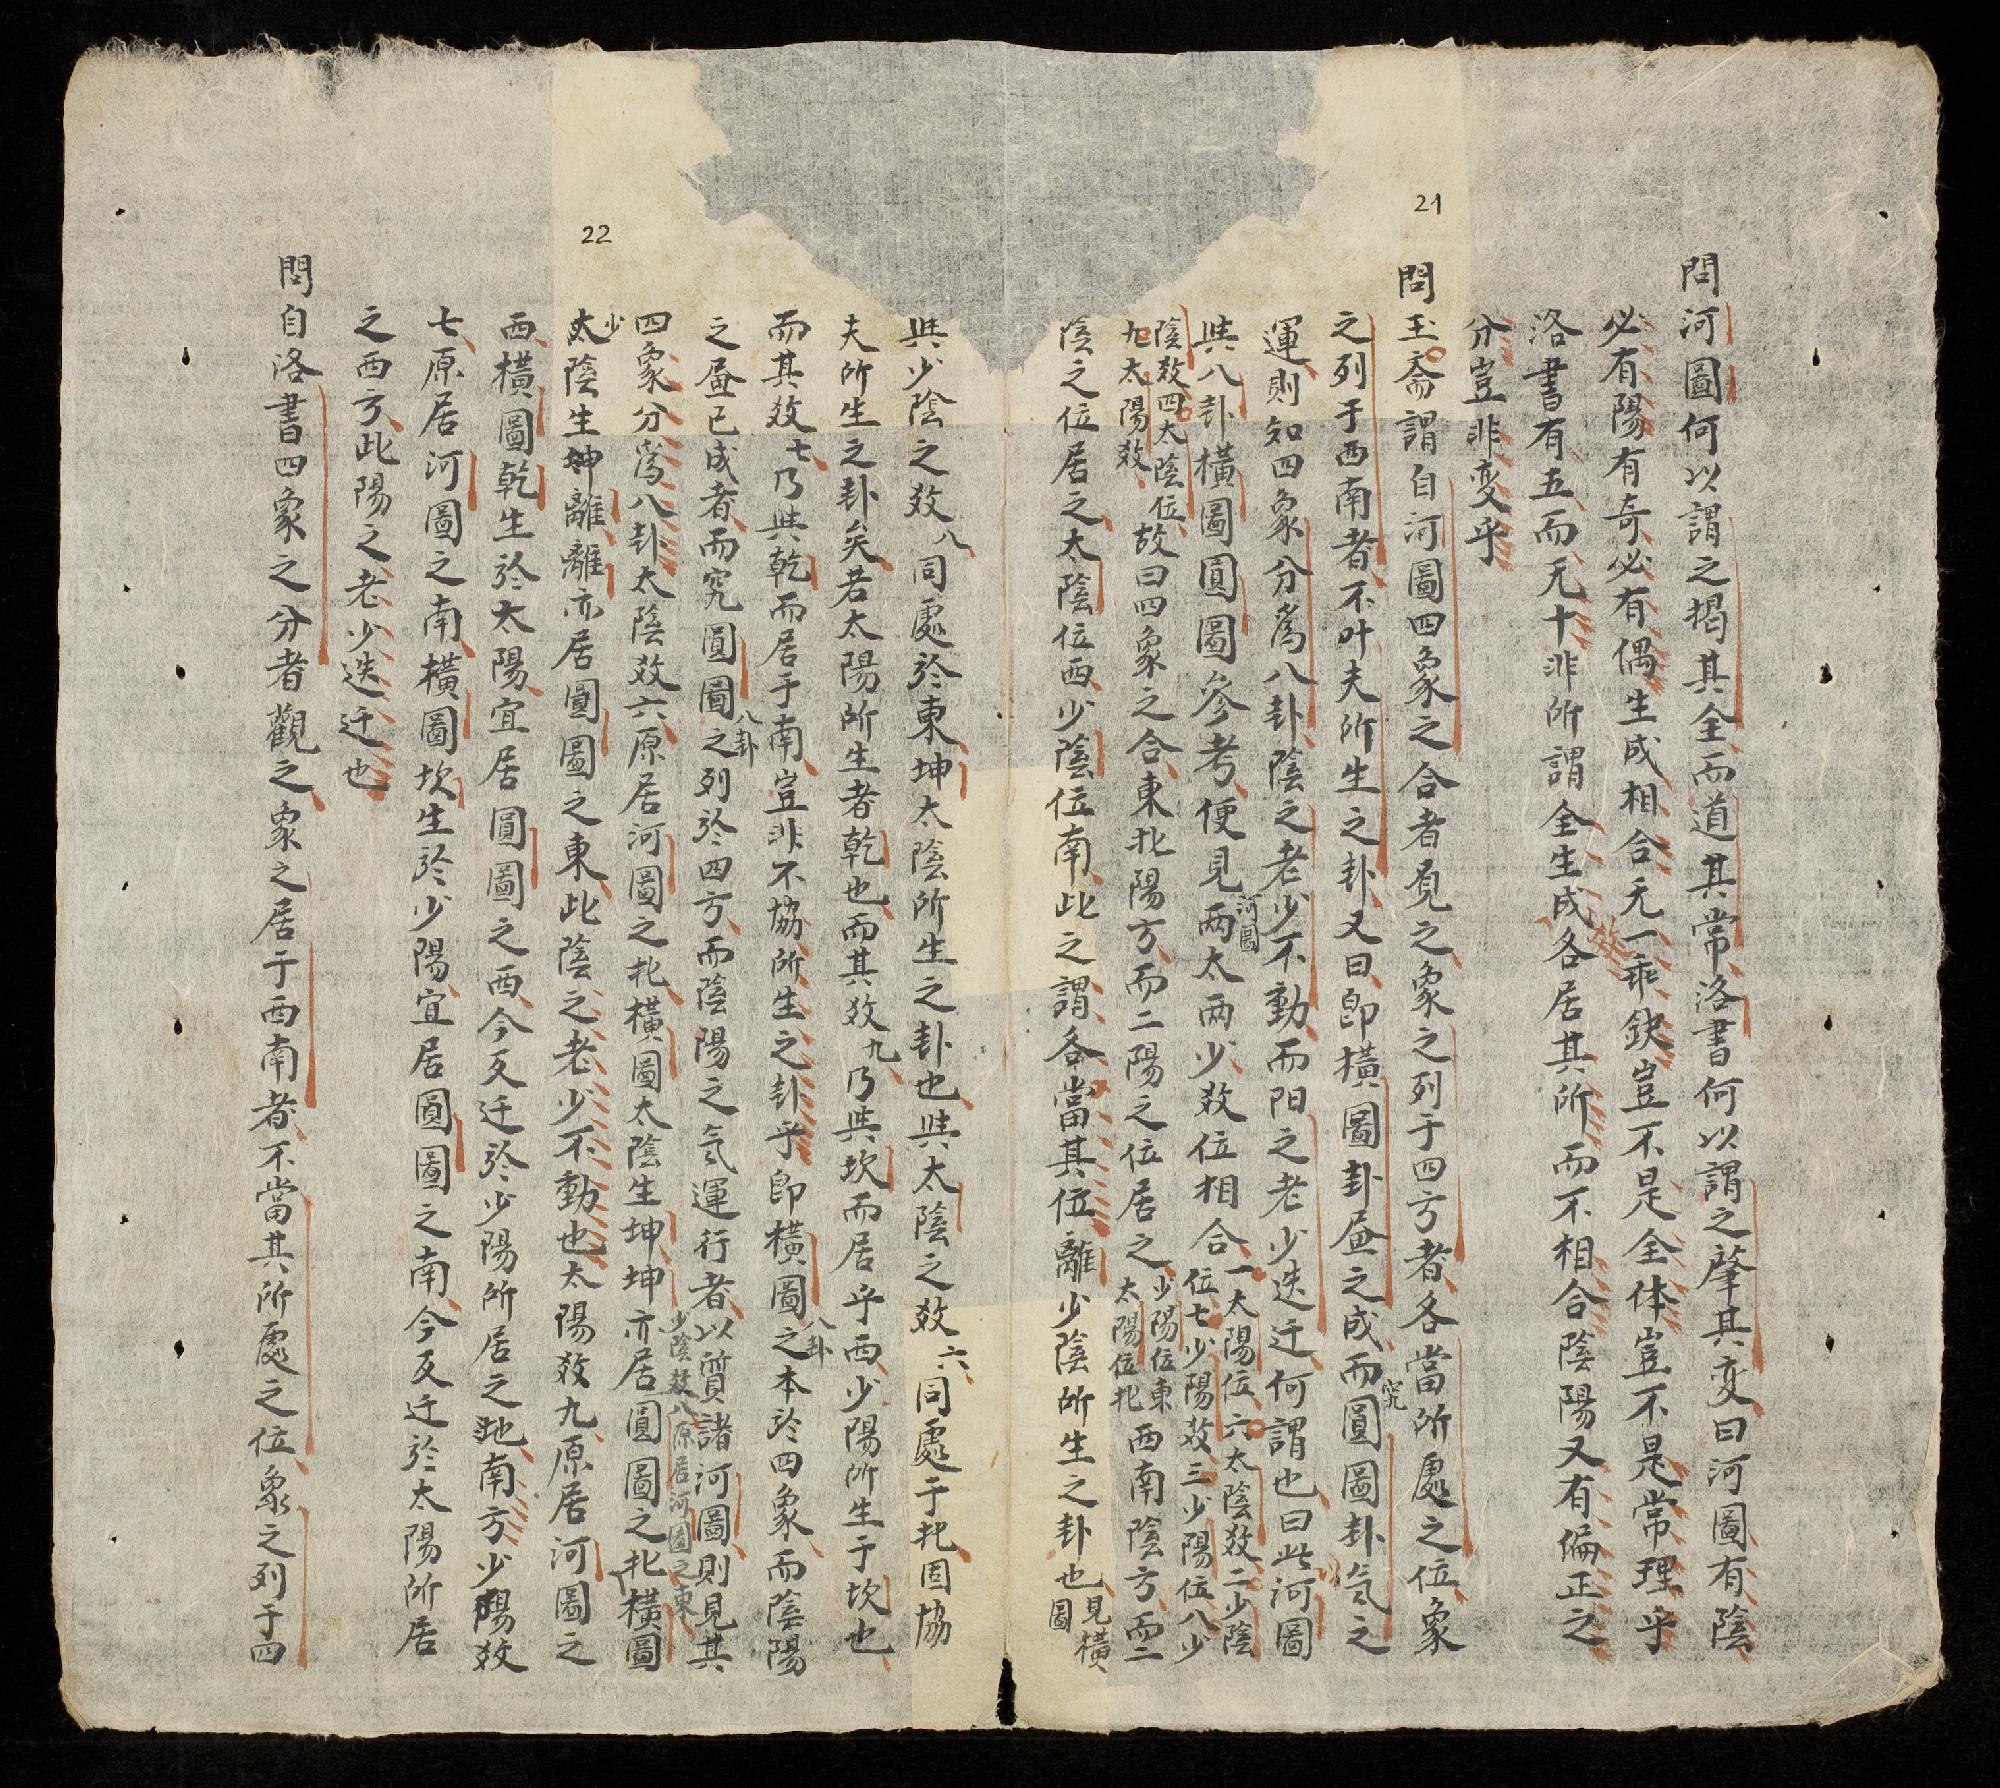 21
問河圖何以謂之揭其全而道其常洛書何以謂之肇其变曰河圖有陰
必有陽有奇必有偶生成相合无一乖缺豈不是全体豈不是常理乎
洛書有五而无十非所謂全生成数各居其所而不相合陰陽又有偏正之
分豈非变乎
問玉斎謂自河圖四象之合者覌之象之列于四方者各當所處之位象
之列于西南者不叶夫所生之卦又曰即橫圖卦畫之成而究圓圖卦氣之
運則知四象分爲八卦陰之老少不動而阳之老少迭迁何謂也曰些河圖
與八卦橫圖圓圖參考便見河圖兩太兩少效位相合一太陽位六太陰效二少陰
位七少陽效三少陽位八少
陰效四太陰位
九太陽效故曰四象之合東北陽方而二陽之位居之少陽位東
太陽位北西南陰方而二
陰之位居之太陰位西少陰位南此之謂各當其位離少陰所生之卦也見橫
圖
與少陰之效八同處於東坤太陰所生之卦也與太陰之效六同處于北固協
夫所生之卦矣若太陽所生者乾也而其效九乃與坎而居乎西少陽所生于坎也
而其效七乃與乾而居于南豈非不協所生之卦乎即橫圖八卦之本於四象而陰陽
之畫已成者而究圓圖八卦之列於四方而陰陽之氣運行者以質諸河圖則見其
四象分爲八卦太陰效六原居河圖之北橫圖太陰生坤坤亦居圓圖之北橫圖
少陰效八原居河圖之東
少陰生離離亦居圓圖之東此陰之老少不動也太陽效九原居河圖之
西橫圖乾生於太陽宜居圓圖之西今反迁於少陽所居之地南方少陽效
七原居河圖之南橫圖坎生於少陽宜居圓圖之南今反迁於太陽所居
之西方此陽之老少迭迁也
問自洛書四象之分者觀之象之居于西南者不當其所處之位象之列于四
22